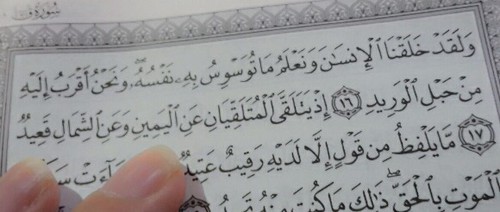 سُورَةُ قٓ
وَلَقَدْ خَلَقْنَا ٱلْإِنسَٰنَ وَنَعْلَمُ مَا تُوَسْوِسُ بِهِۦ نَفْسُهُۥۖ وَنَحْنُ أَقْرَبُ إِلَيْهِ
مِنْ حَبْلِ ٱلْوَرِيدِ ١٦ إِذْ يَتَلَقَّى ٱلْمُتَلَقِّيَانِ عَنِ ٱلْيَمِينِ وَعَنِ ٱلشِّمَالِ قَعِيدٌ
١٧ مَّا يَلْفِظُ مِن قَوْلٍ إِلَّا لَدَيْهِ رَقِيبٌ عَتِيدٌ
ٱلْمَوْتِ بِٱلْحَقِّۖ ذَٰلِكَ مَا كُنتَ مِنْهُ